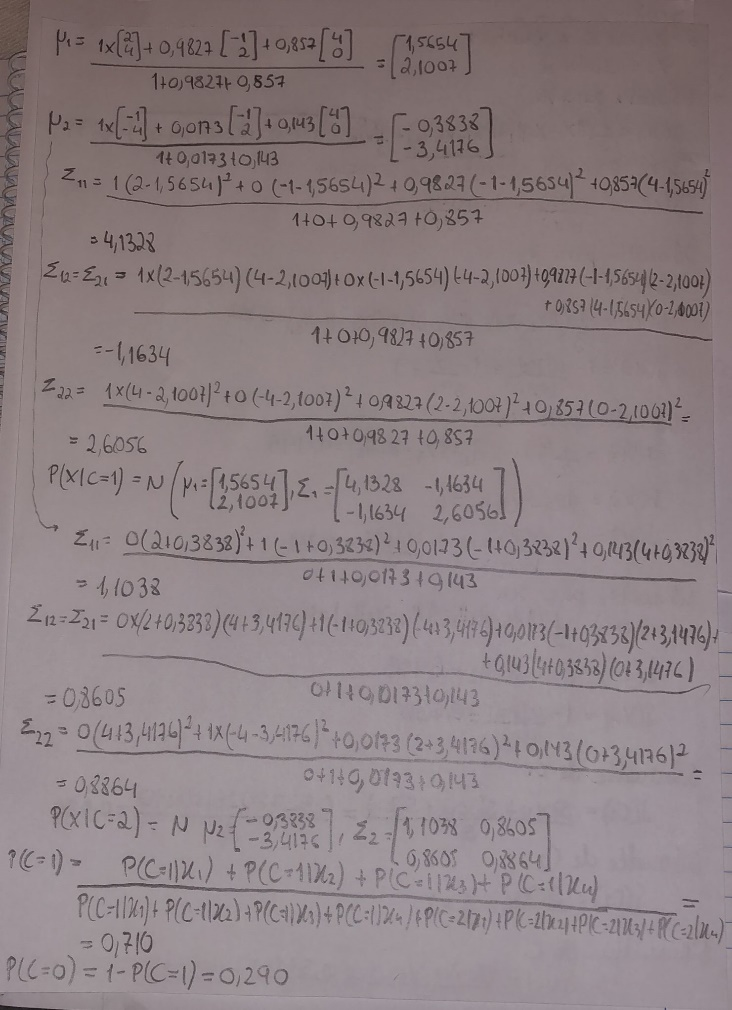 μ₁ = 1x[2 4] + 0,9827 [-1 2] + 0,857 [4 0] = [1,5654 2,1007]
1+0,9827+0,857
μ₂ = 1x[-1 -4] + 0,0173 [-1 2] + 0,143 [4 0] = [-0,3838 -3,4176]
1+0,0173+0,143
Σ₁₁ = 1(2-1,5654)² + 0(-1-1,5654)² + 0,9827(-1-1,5654)² + 0,857(4-1,5654)²
1+0+0,9827+0,857
= 4,1328
Σ₁₂=Σ₂₁ = 1x(2-1,5654)(4-2,1007)+0x(-1-1,5654)(-4-2,1007)+0,9827(-1-1,5654)(2-2,1007)
+0,857(4-1,5654)(0-2,1007)
1+0+0,9827+0,857
=-1,1634
Σ₂₂ = 1x(4-2,1007)²+0(-4-2,1007)²+0,9827(2-2,1007)²+0,857(0-2,1007)² =
1+0+0,9827+0,857
= 2,6056
P(X|C=1) = N(μ₁=[1,5654 2,1007], Σ₁=[4,1328 -1,1634 -1,1634 2,6056])
Σ₁₁ = 0(2+0,3838)²+1(-1+0,3838)²+0,0173(-1+0,3838)²+0,143(4+0,3838)²
0+1+0,0173+0,143
= 1,1038
Σ₁₂=Σ₂₁ = 0x(2+0,3838)(4+3,4176)+1(-1+0,3838)(-4+3,4176)+0,0173(-1+0,3838)(2+3,1476)+
+0,143(4+0,3838)(0+3,1476)
0+1+0,0173+0,143
= 0,8605
Σ₂₂ = 0(4+3,4176)²+1x(-4-3,4176)²+0,0173(2+3,4176)²+0,143(0+3,4176)² =
0+1+0,0173+0,143
= 0,8864
P(X|C=2) = N μ₂=[-0,3838 -3,4176], Σ₂=[1,1038 0,8605 0,8605 0,8864]
P(C=1) = P(C=1|x₁) + P(C=1|x₂) + P(C=1|x₃) + P(C=1|x₄) =
P(C=1|x₁)+P(C=1|x₂)+P(C=1|x₃)+P(C=1|x₄)+P(C=2|x₁)+P(C=2|x₂)+P(C=2|x₃)+P(C=2|x₄)
= 0,710
P(C=0) = 1-P(C=1) = 0,290